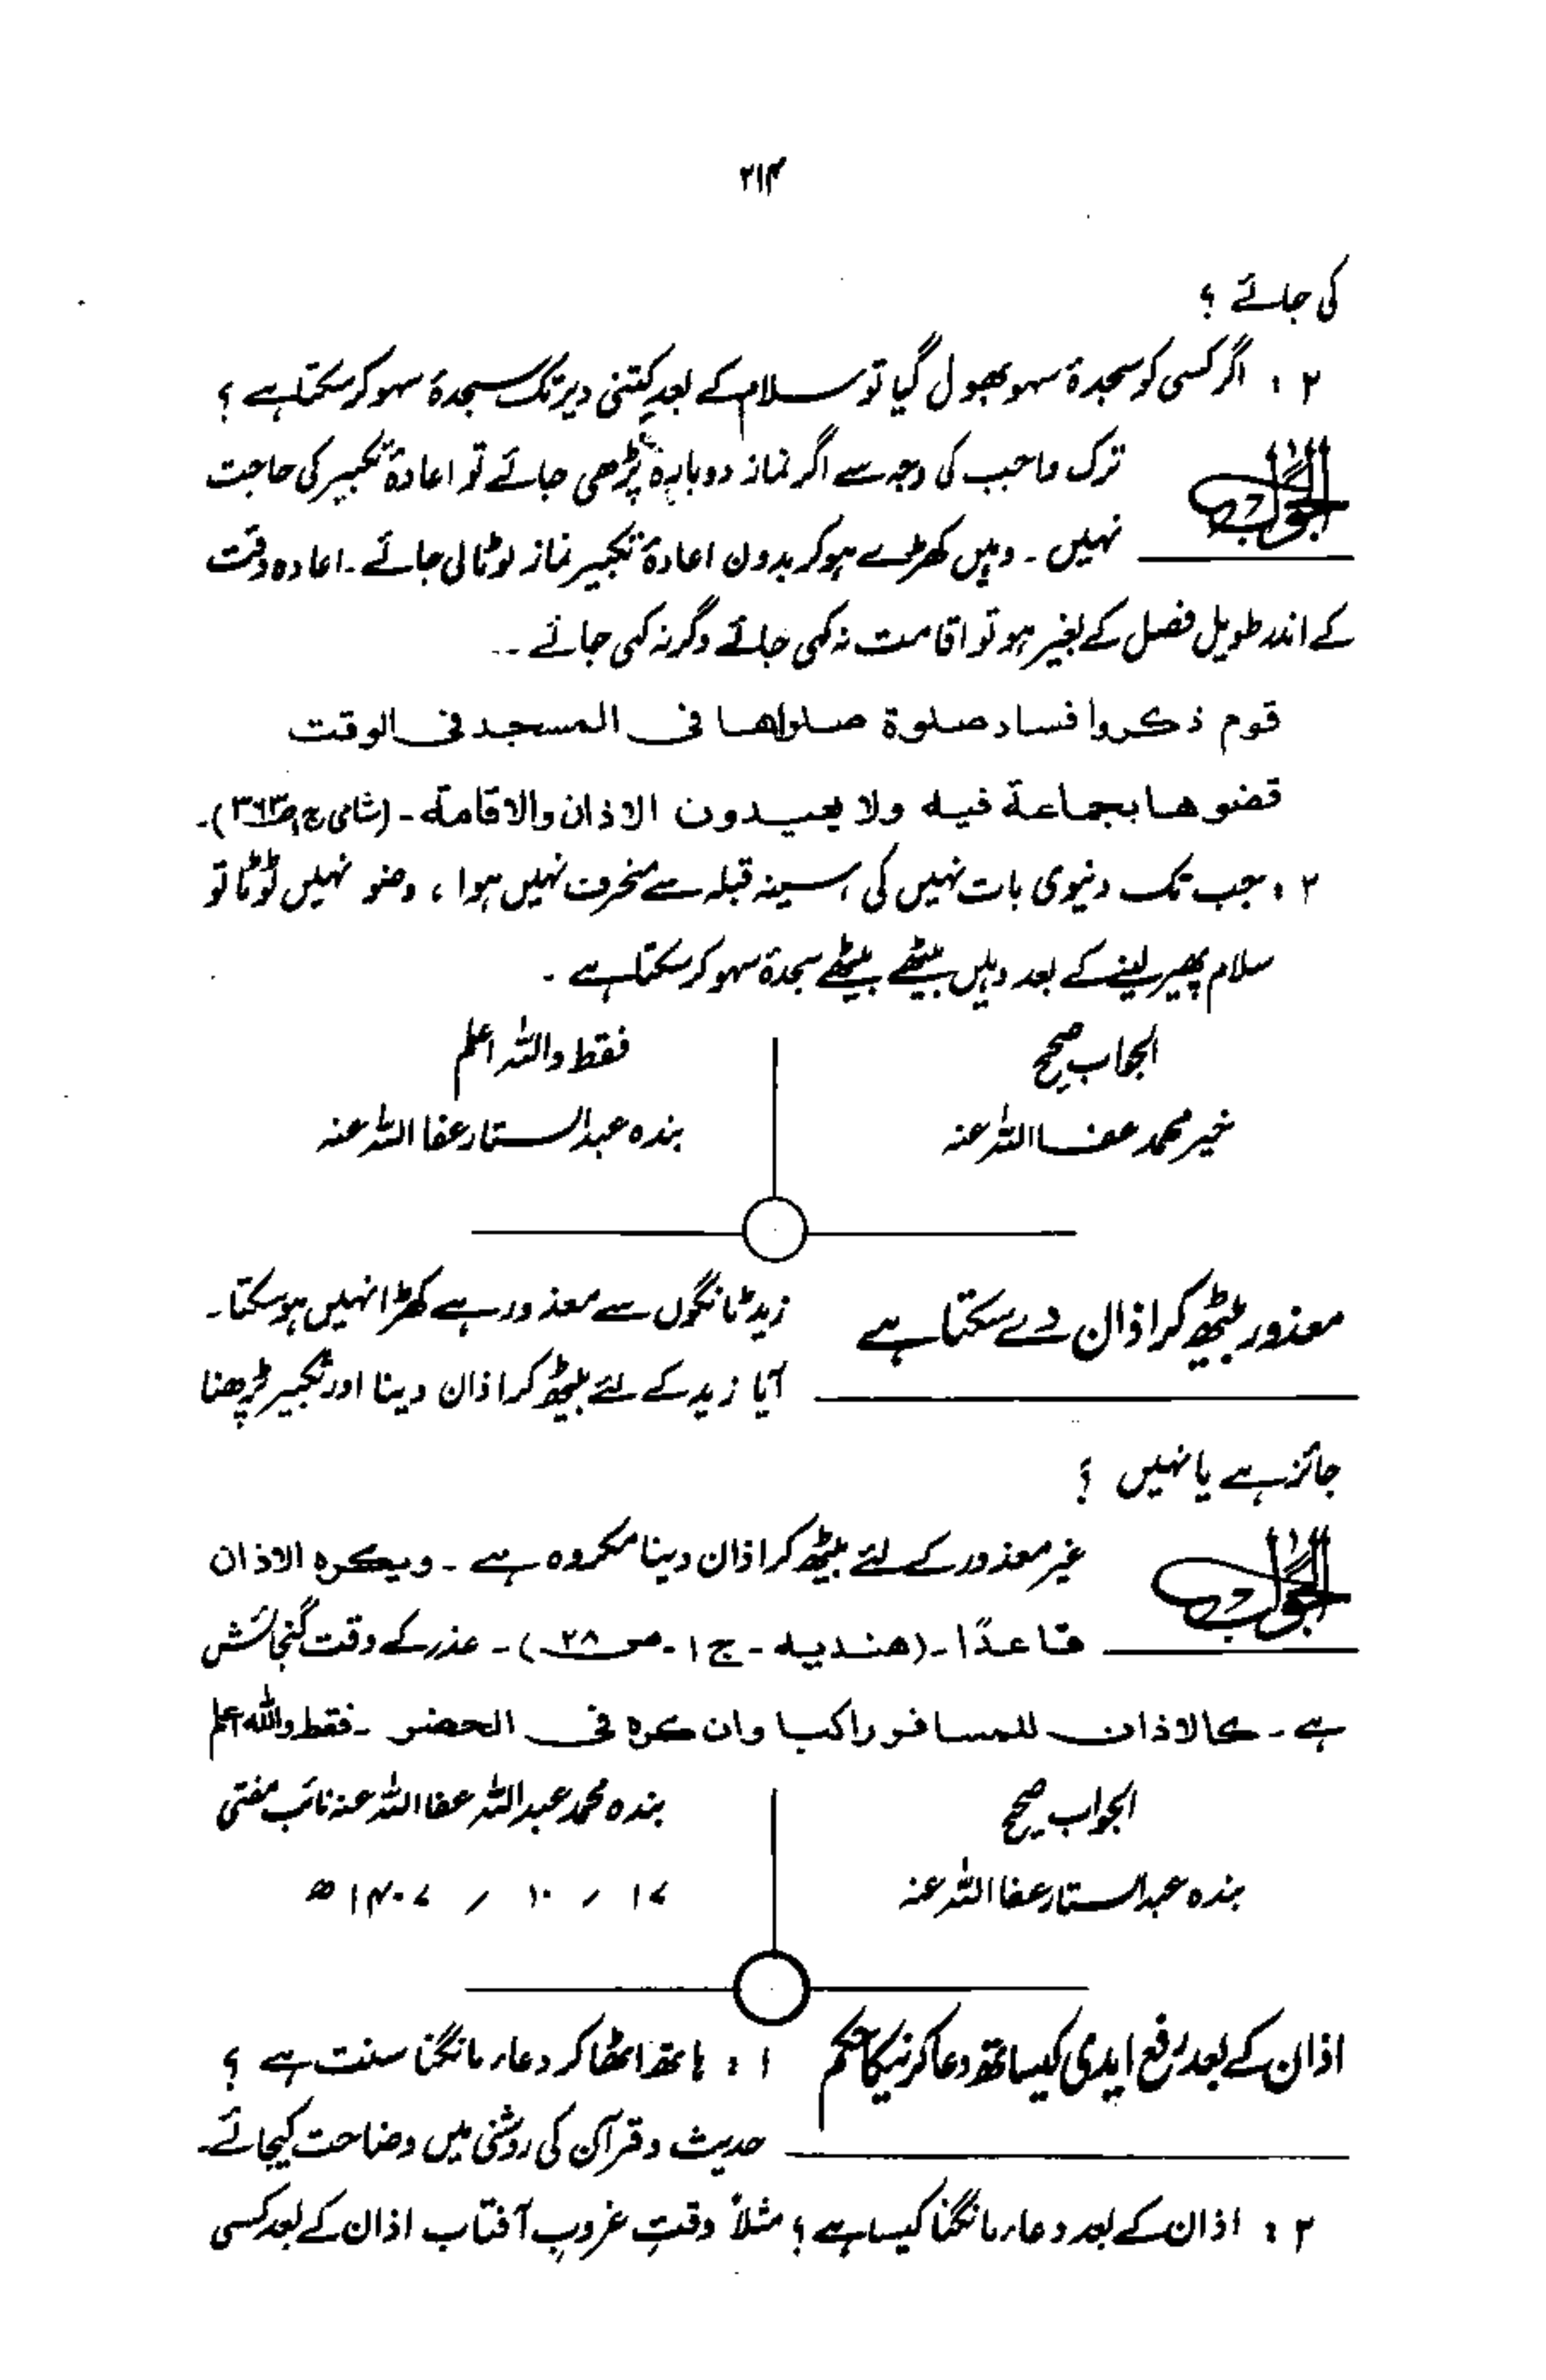 ۲۱۴
کی جائے ؟
۲ : اگر کسی کو سجدۂ سہو بھول گیا تو سلام کے بعد کتنی دیر تک سجدۂ سہو کر سکتا ہے ؟
الجواب ترک واجب کی وجہ سے اگر نماز دوبارہ پڑھی جائے تو اعادۂ تکبیر کی حاجت
نہیں ۔ وہیں کھڑے ہو کر بدون اعادۂ تکبیر نماز لوٹا لی جائے ۔ اعادہ وقت
کے اندر طویل فصل کے بغیر ہو تو اقامت نہ کہی جائے وگرنہ کہی جائے ۔
قوم ذکروا فساد صلوة صلواها فی المسجد فی الوقت
قضوها بجماعة فیه ولا یعیدون الاذان والاقامة ۔ (شامی ج۱ ص۳۶۳)۔
۲ : جب تک دنیوی بات نہیں کی ، سینہ قبلہ سے منحرف نہیں ہوا ، وضو نہیں ٹوٹا تو
سلام پھیر لینے کے بعد وہیں بیٹھے بیٹھے سجدۂ سہو کر سکتا ہے ۔
الجواب صحیح
خیر محمد عفا اللہ عنہ
فقط واللہ اعلم
بندہ عبد الستار عفا اللہ عنہ
معذور بیٹھ کر اذان دے سکتا ہے
زید ٹانگوں سے معذور ہے کھڑا نہیں ہو سکتا ۔
آیا زید کے لئے بیٹھ کر اذان دینا اور تکبیر پڑھنا
جائز ہے یا نہیں ؟
الجواب غیر معذور کے لئے بیٹھ کر اذان دینا مکروہ ہے ۔ ویکره الاذان
قاعدًا ۔ (هندیه ۔ ج۱ ۔ ص۲۸) ۔ عذر کے وقت گنجائش
ہے ۔ کالاذان للمسافر راکبا وان کره فی الحضر ۔ فقط واللہ اعلم
الجواب صحیح
بندہ عبد الستار عفا اللہ عنہ
بندہ محمد عبد اللہ عفا اللہ عنہ نائب مفتی
۱۷ / ۱۰ / ۱۴۰۷ ھ
اذان کے بعد رفع ایدی کیساتھ دعا کرنیکا حکم
۱ : ہاتھ اٹھا کر دعاء مانگنا سنت ہے ؟
حدیث و قرآن کی روشنی میں وضاحت کیجائے۔
۲ : اذان کے بعد دعاء مانگنا کیسا ہے ؟ مثلاً وقتِ غروبِ آفتاب اذان کے بعد کسی